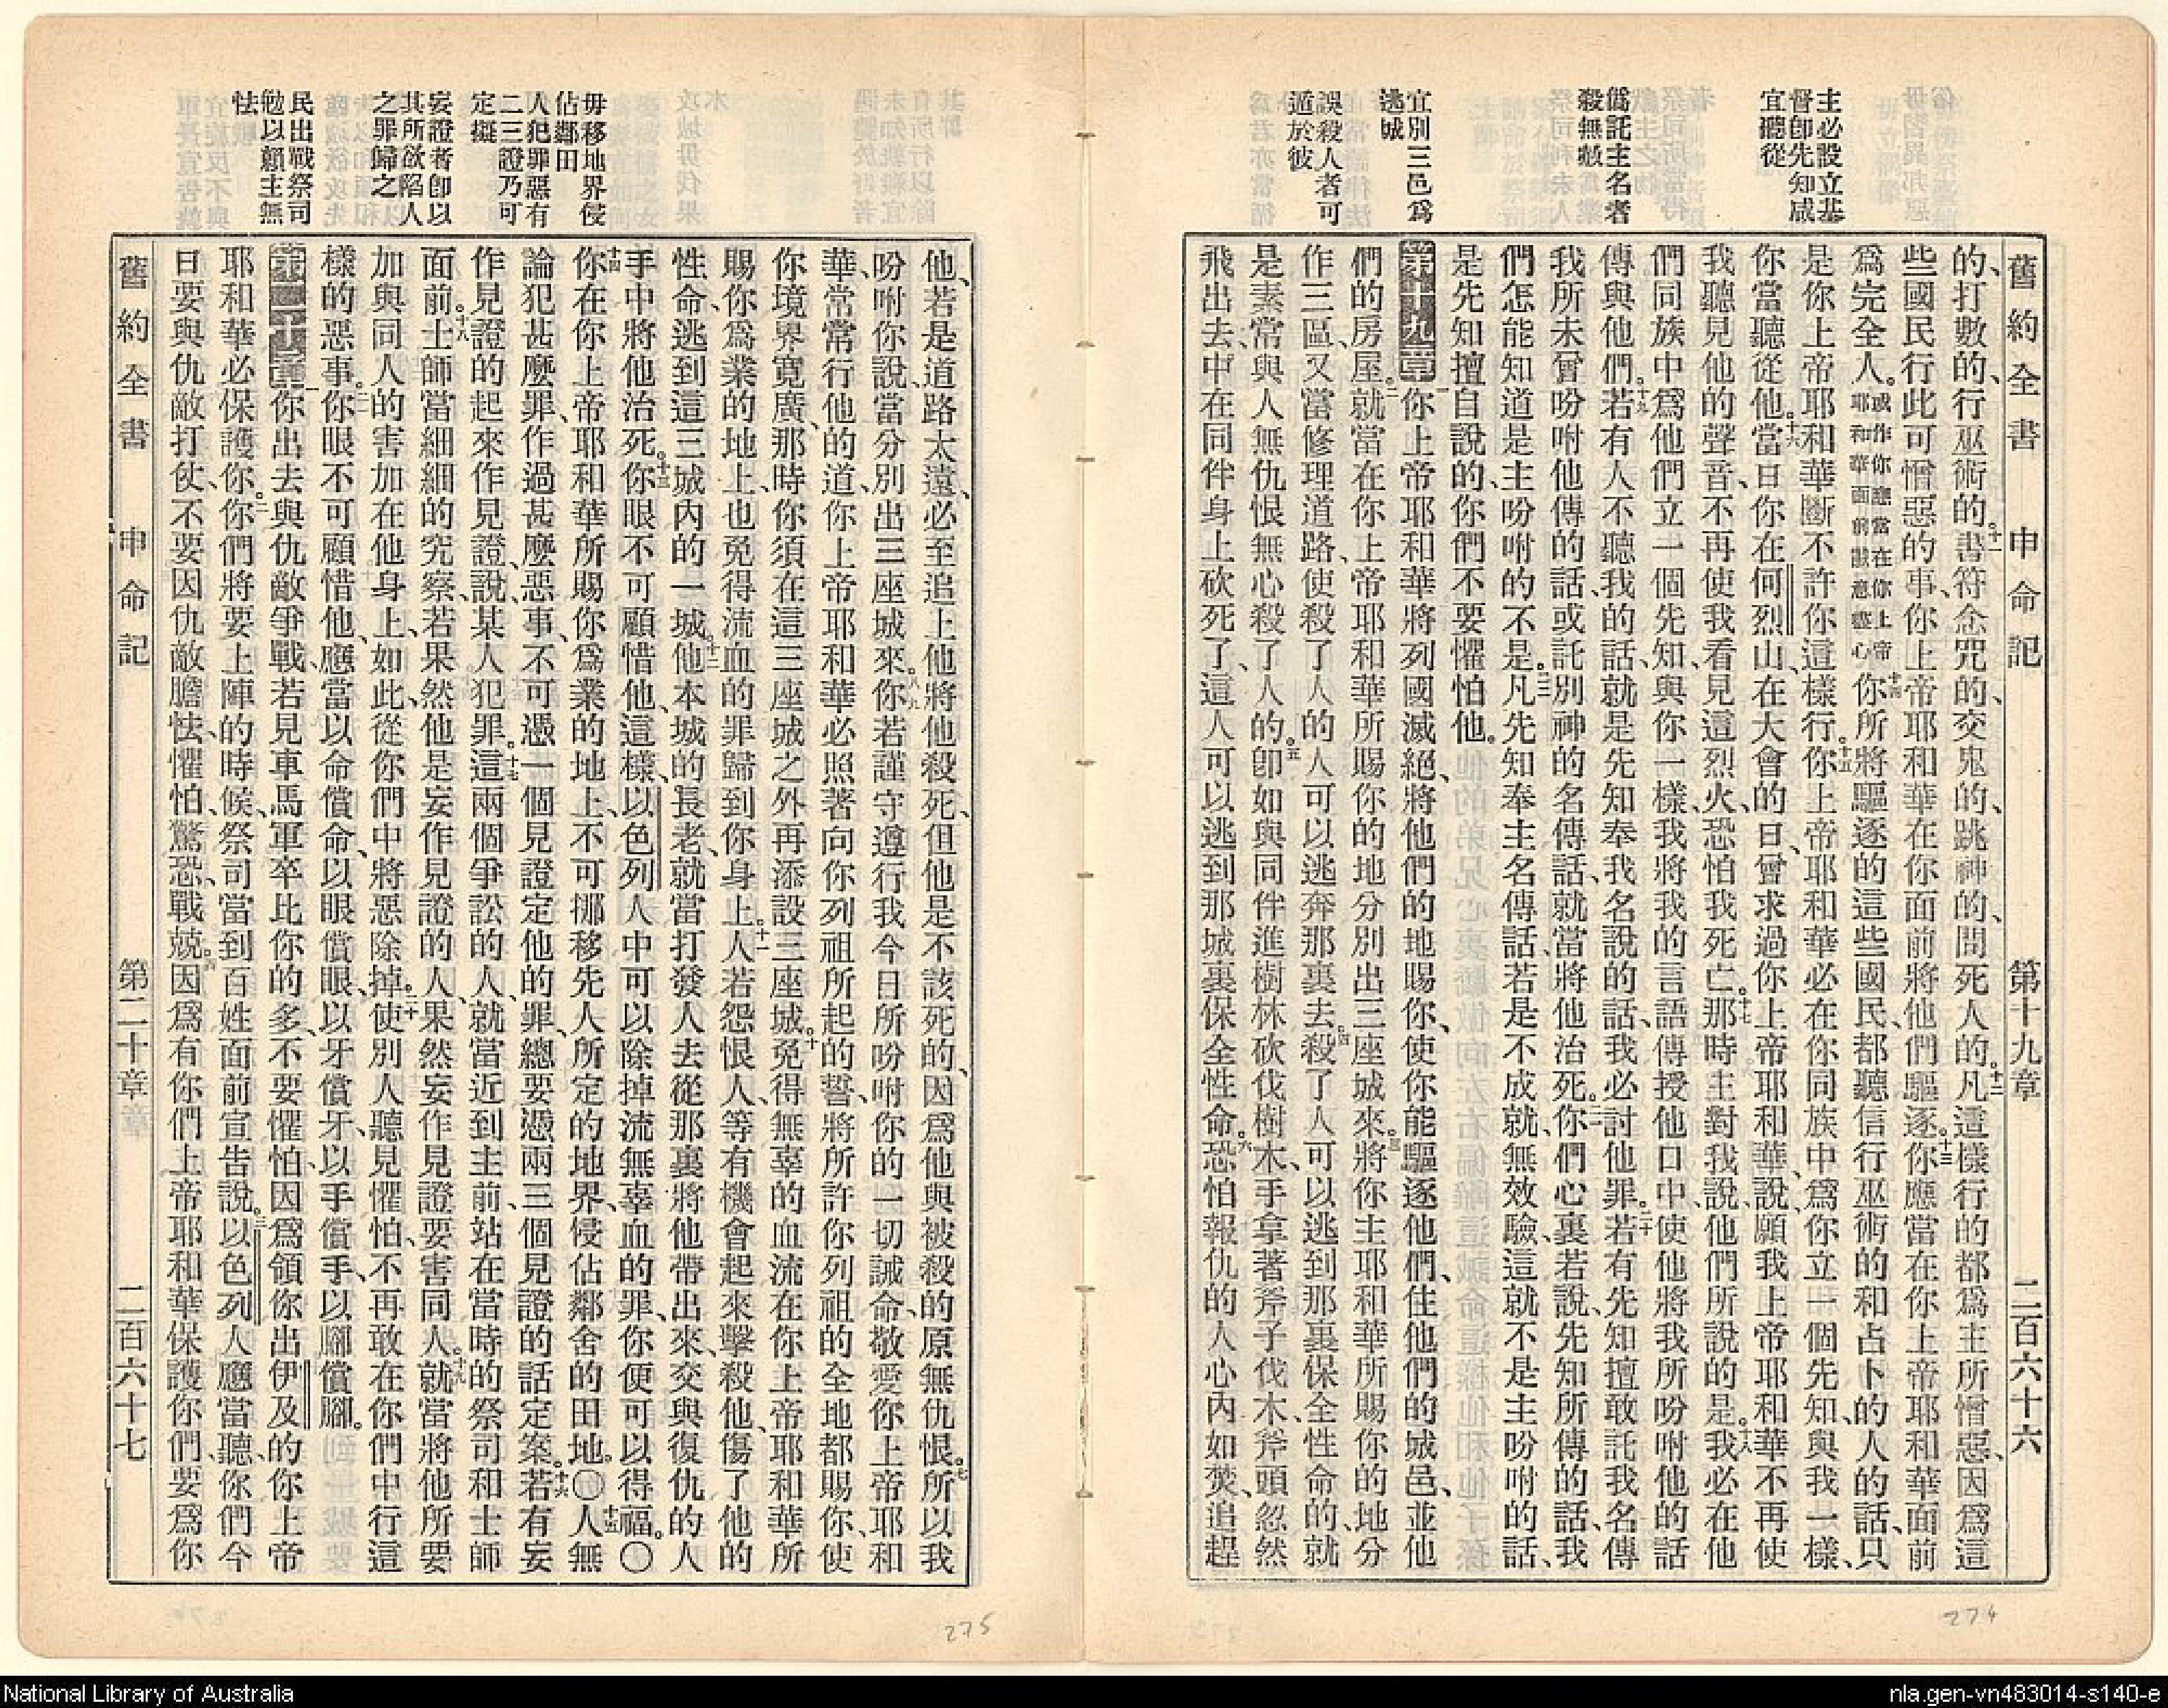 舊約全書 申命記 第十九章 二百六十六
主必設立基
督卽先知咸
宜聽從
僞託主名者
殺無赦
宜別三邑爲
逃城
誤殺人者可
遁於彼
的、打數的、行巫術的。十一書符念咒的、交鬼的、跳神的、問死人的。十二凡這樣行的都爲主所憎惡、因爲這
些國民行此可憎惡的事、你上帝耶和華在你面前將他們驅逐。十三你應當在你上帝耶和華面前
爲完全人。或作你應當在你上帝耶和華面前誠意盡心十四你所將驅逐的這些國民、都聽信行巫術的和占卜的人的話、只
是你上帝耶和華斷不許你這樣行。十五你上帝耶和華必在你同族中爲你立一個先知、與我一樣、
你當聽從他。十六當日你在何烈山、在大會的日、曾求過你上帝耶和華、說、願我上帝耶和華不再使
我聽見他的聲音、不再使我看見這烈火、恐怕我死亡。十七那時主對我說、他們所說的是。十八我必在他
們同族中爲他們立一個先知、與你一樣、我將我的言語傳授他口中、使他將我所吩咐他的話
傳與他們。十九若有人不聽我的話、就是先知奉我名說的話、我必討他罪。二十若有先知擅敢託我名傳
我所未曾吩咐他傳的話、或託別神的名傳話、就當將他治死。二一你們心裏若說、先知所傳的話、我
們怎能知道是主吩咐的不是。二二凡先知奉主名傳話、若是不成就、無效驗、這就不是主吩咐的話、
是先知擅自說的、你們不要懼怕他。
第十九章 一你上帝耶和華將列國滅絕、將他們的地賜你、使你能驅逐他們、住他們的城邑、並他
們的房屋。二就當在你上帝耶和華所賜你的地分別出三座城來。三將你主耶和華所賜你的地分
作三區、又當修理道路、使殺了人的人可以逃奔那裏去。四殺了人可以逃到那裏保全性命的、就
是素常與人無仇恨、無心殺了人的。五卽如與同伴進樹林砍伐樹木、手拿著斧子伐木、斧頭忽然
飛出去、中在同伴身上砍死了、這人可以逃到那城裏保全性命。六恐怕報仇的人心內如焚、追趕
274
毋移地界侵
佔鄰田
人犯罪惡有
二三證乃可
定擬
妄證者卽以
其所欲陷人
之罪歸之
民出戰祭司
勉以賴主無
怯
他、若是道路太遠、必至追上他將他殺死、但他是不該死的、因爲他與被殺的原無仇恨。七所以我
吩咐你說、當分別出三座城來。八九你若謹守遵行我今日所吩咐你的一切誡命、敬愛你上帝耶和
華、常常行他的道、你上帝耶和華必照著向你列祖所起的誓、將所許你列祖的全地都賜你、使
你境界寬廣、那時你須在這三座城之外再添設三座城。十免得無辜的血流在你上帝耶和華所
賜你爲業的地上、也免得流血的罪歸到你身上。十一人若怨恨人、等有機會起來擊殺他、傷了他的
性命、逃到這三城內的一城。十二他本城的長老、就當打發人去從那裏將他帶出來、交與復仇的人
手中將他治死。十三你眼不可顧惜他、這樣、以色列人中可以除掉流無辜血的罪、你便可以得福。〇
十四你在你上帝耶和華所賜你爲業的地上、不可挪移先人所定的地界、侵佔鄰舍的田地。〇十五人無
論犯甚麼罪、作過甚麼惡事、不可憑一個見證定他的罪、總要憑兩三個見證的話定案。十六若有妄
作見證的起來作見證、說某人犯罪。十七這兩個爭訟的人、就當近到主前、站在當時的祭司和士師
面前。十八士師當細細的究察、若果然他是妄作見證的人、果然妄作見證要害同人。十九就當將他所要
加與同人的害加在他身上、如此從你們中將惡除掉。二十使別人聽見懼怕、不再敢在你們中行這
樣的惡事。二一你眼不可顧惜他、應當以命償命、以眼償眼、以牙償牙、以手償手、以腳償腳。
第二十章 一你出去與仇敵爭戰、若見車馬軍卒比你的多、不要懼怕、因爲領你出伊及的你上帝
耶和華必保護你。二你們將要上陣的時候、祭司當到百姓面前宣告說。三以色列人應當聽、你們今
日要與仇敵打仗、不要因仇敵膽怯、懼怕、驚恐、戰兢。四因爲有你們上帝耶和華保護你們、要爲你
舊約全書 申命記 第二十章 二百六十七
275
National Library of Australia
nla.gen-vn483014-s140-e